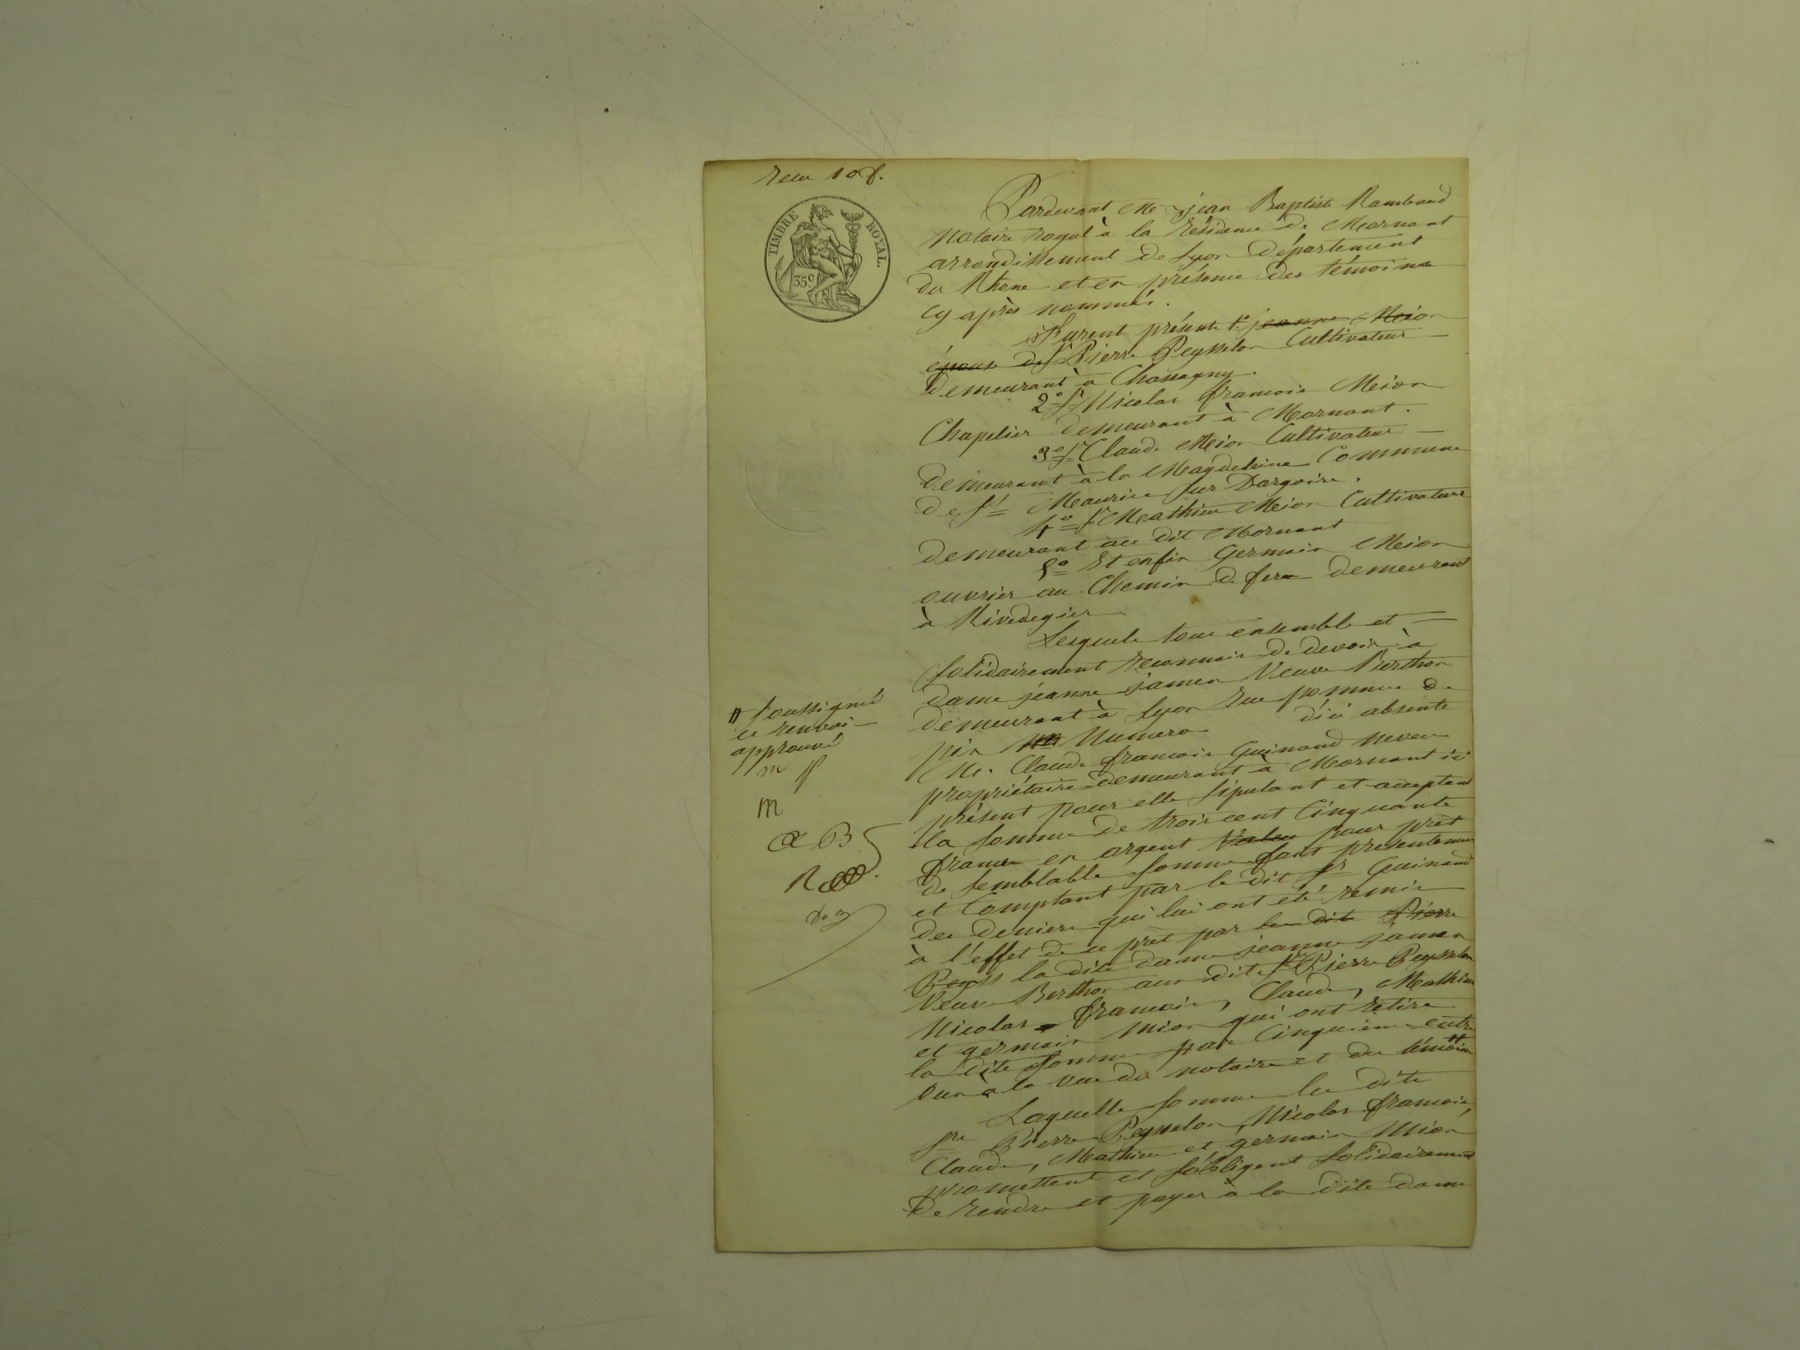 recu 10 f.
TIMBRE ROYAL.
35 c
Pardevant Me jean Baptiste Rambaud
Notaire royal à la résidence de Mornant
arrondissement de Lyon département
du Rhone et en présence des témoins
cy après nommés.
Furent présents 1º jeanne Meion
épouse de Sr Pierre Peysselon Cultivateur
demeurant à Chassagny.
2º Sr Nicolas françois Meion
Chapelier demeurant à Mornant.
3º Sr Claude Meion Cultivateur
demeurant à la Magdeleine Commune
de St Maurice sur Dargoire.
4º Sr Mathieu Meion Cultivateur
demeurant au dit Mornant
5º Et enfin Germain Meion
ouvrier au Chemin de fer demeurant
à Rivedegier
Lesquels tous ensemble et
solidairement reconnais de devoir à
dame jeanne jamen Veuve Berthon
demeurant à Lyon rue pomme de
pin Numero d'ici absente
Me. Claude françois Guinand neveu
propriétaire demeurant à Mornant ici
présent pour elle stipulant et acceptant
la somme de trois cent Cinquante
francs en argent Valeu pour prêt
de semblable somme fait présentement
et Comptant par le dit sr Guinand
des deniers qui lui ont été remis
à l'effet de ce prêt par les dits Pierre
Peyss la dite dame jeanne jamen
Veuve Berthon aux dits srs Pierre Peysselon
Nicolas françois, Claude, Mathieu
et germain Mion qui ont retiré
la dite somme par Cinquieme entre
eux à la vue du notaire et des témoins
Laquelle somme les dits
srs Pierre Peysselon, Nicolas françois,
Claude, Mathieu et germain Mion
promettent et s'obligent solidairement
de rendre et payer à la dite dame
soussignés
ce renvoi
approuvé
m P
m
B
R